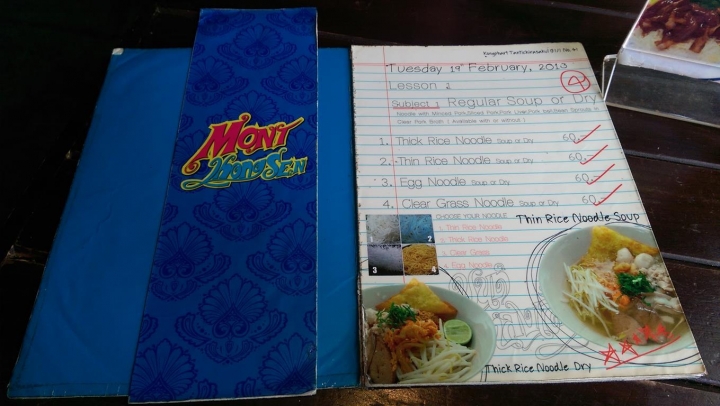 MONT
NOMSEN
Tuesday 19 February, 2013
Lesson 2
Subject 1 Regular Soup or Dry
Noodle with Minced Pork,Sliced Pork,Pork Liver,Pork ball,Bean Sprouts in
Clear Pork Broth ( Available with or without )
1. Thick Rice Noodle Soup or Dry 60.-
2. Thin Rice Noodle Soup or Dry 60.-
3. Egg Noodle Soup or Dry 60.-
4. Clear Grass Noodle Soup or Dry 60.-
CHOOSE YOUR NOODLE
1. Thin Rice Noodle
2. Thick Rice Noodle
3. Clear Grass
4. Egg Noodle
1 2
3 4
Thin Rice Noodle Soup
Thick Rice Noodle Dry